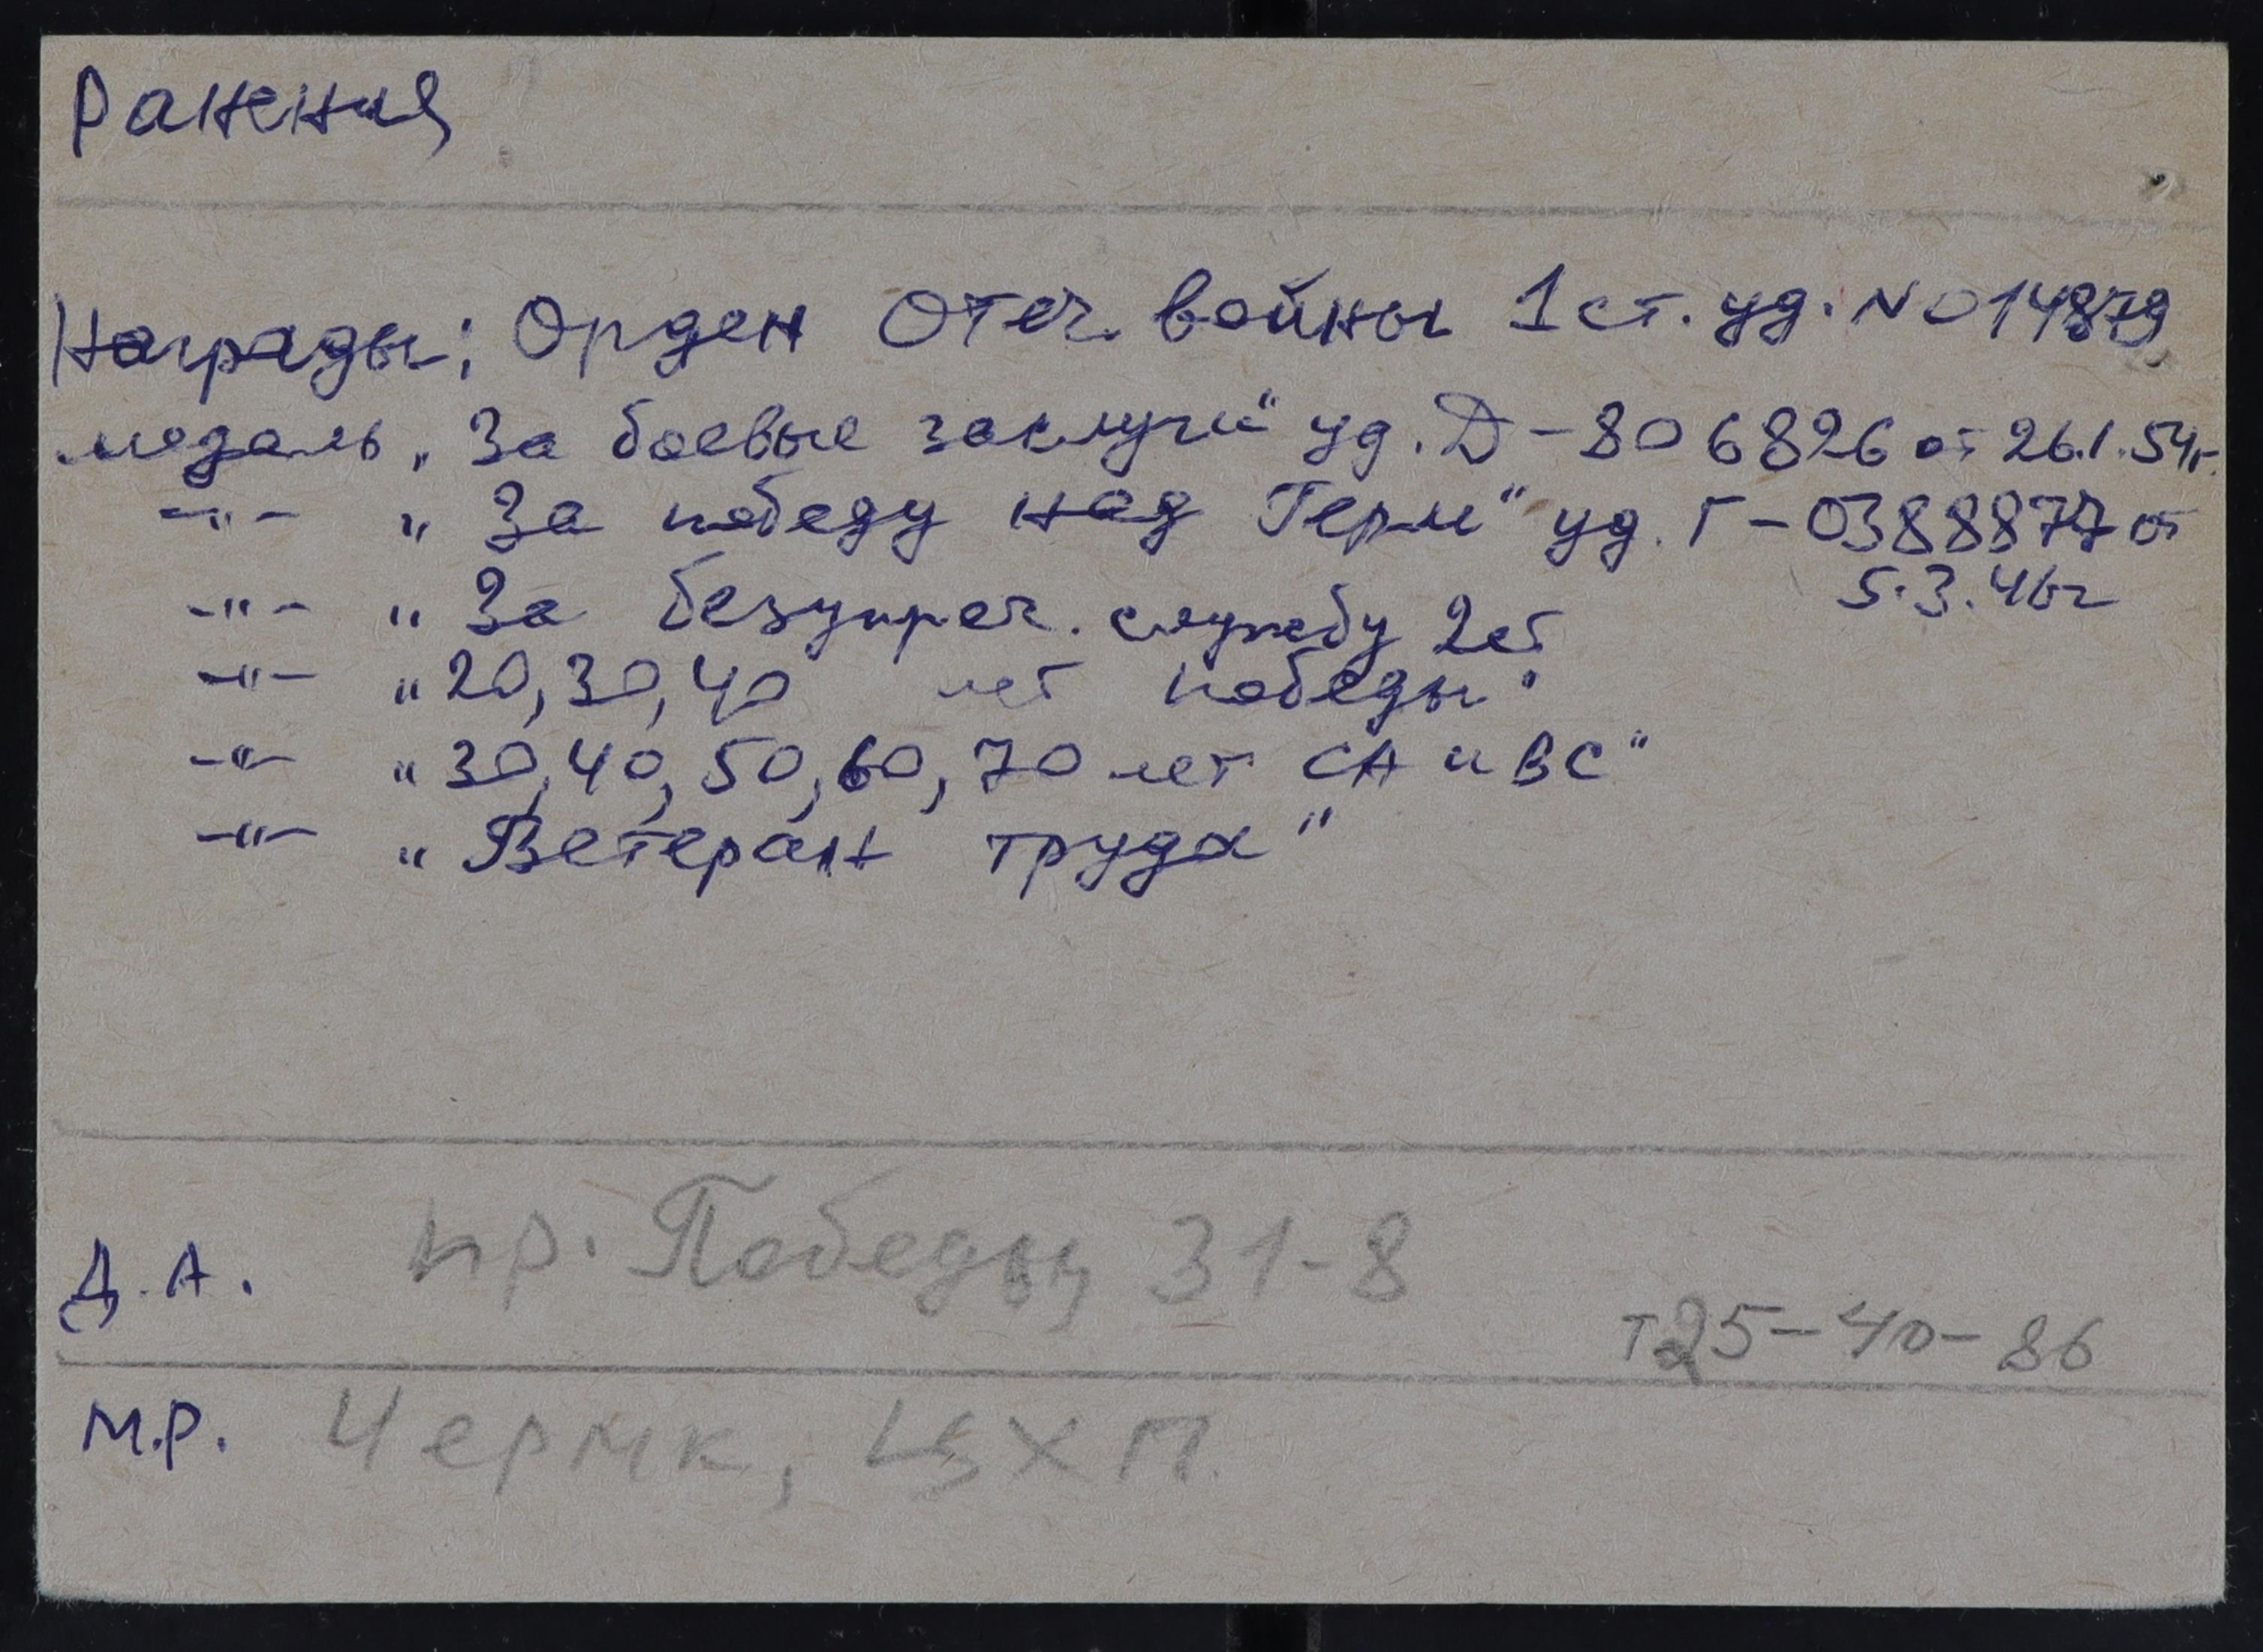 Ранения
Награды: Орден Отеч. войны 1 ст. уд. N 014879
медаль „За боевые заслуги" уд. Д-806826 от 26.1.54г.
-"- „За победу над Герм" уд. Г-0388877 от
5.3.46г
-"- „За безупреч. службу 2ст
-"- „20, 30, 40 лет победы"
-"- „30, 40, 50, 60, 70 лет СА и ВС"
-"- „Ветеран труда"
Д.А. пр. Победы 31-8
т 25-40-86
М.Р. ЧерМК, ЦХП.